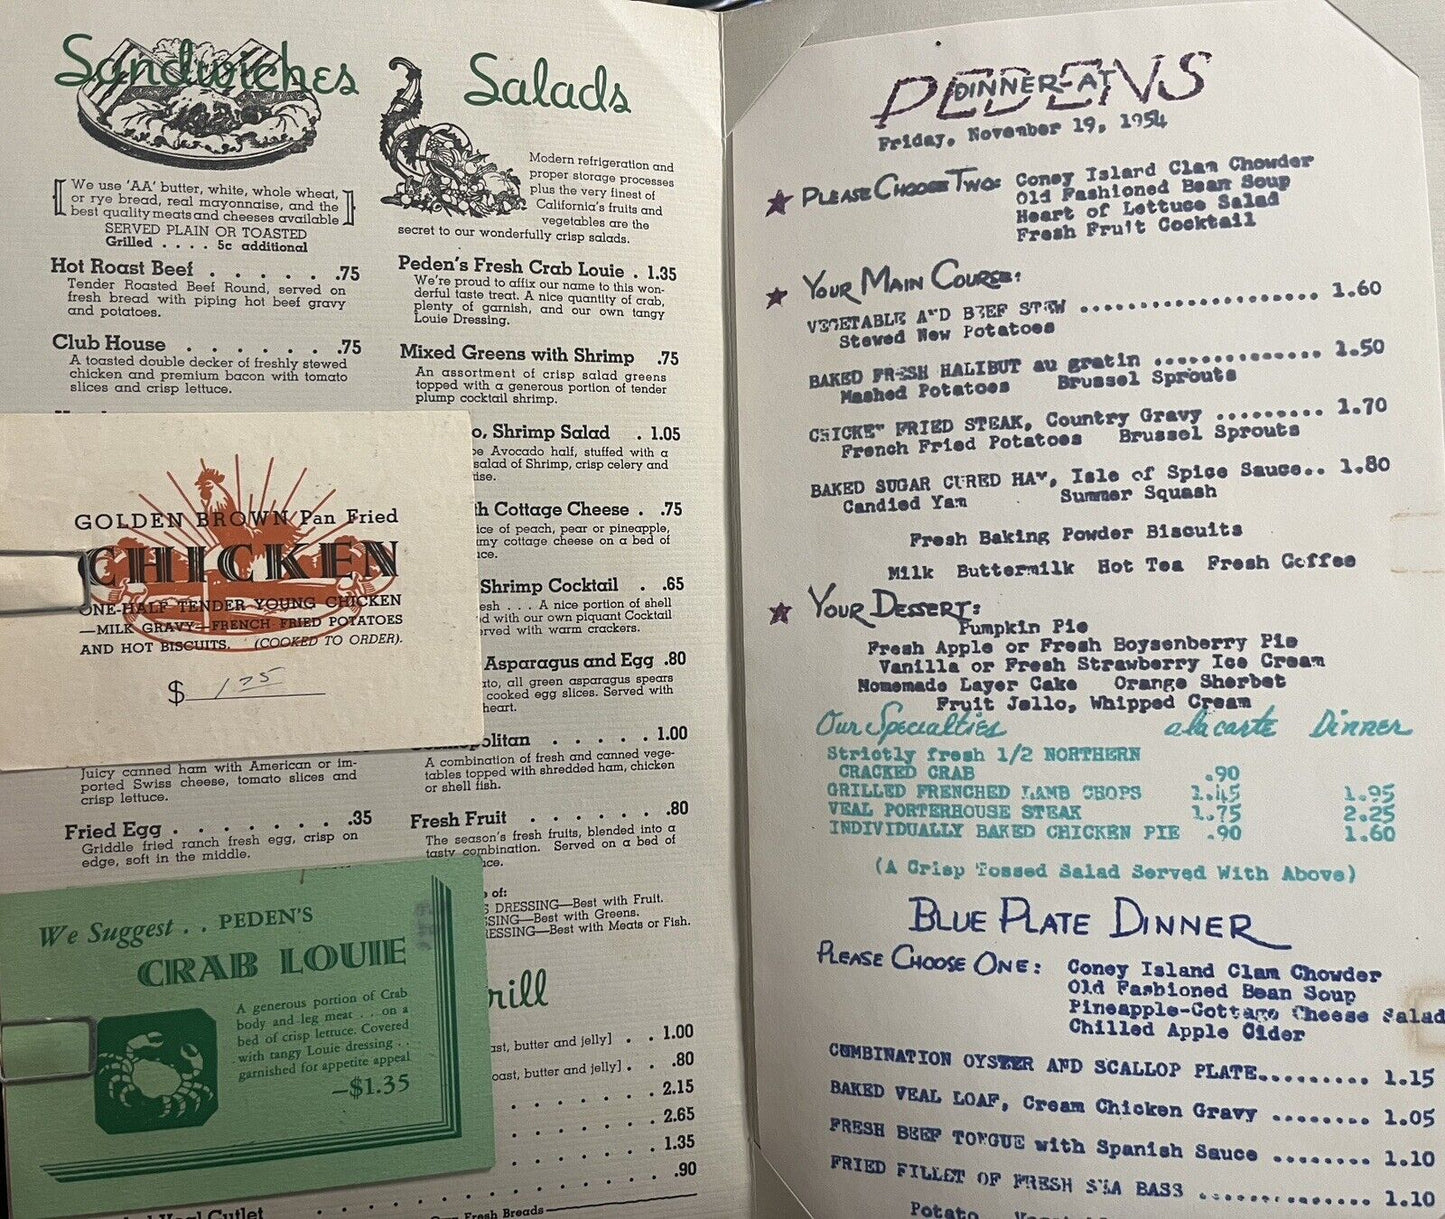 Sandwiches
We use 'AA' butter, white, whole wheat,
or rye bread, real mayonnaise, and the
best quality meats and cheeses available
SERVED PLAIN OR TOASTED
Grilled . . . . 5c additional
Hot Roast Beef . . . . . . .75
Tender Roasted Beef Round, served on
fresh bread with piping hot beef gravy
and potatoes.
Club House . . . . . . . .75
A toasted double decker of freshly stewed
chicken and premium bacon with tomato
slices and crisp lettuce.
GOLDEN BROWN Pan Fried
CHICKEN
ONE-HALF TENDER YOUNG CHICKEN
—MILK GRAVY—FRENCH FRIED POTATOES
AND HOT BISCUITS. (COOKED TO ORDER).
$ 1.25
Juicy canned ham with American or im-
ported Swiss cheese, tomato slices and
crisp lettuce.
Fried Egg . . . . . . . . .35
Griddle fried ranch fresh egg, crisp on
edge, soft in the middle.
We Suggest . . PEDEN'S
CRAB LOUIE
A generous portion of Crab
body and leg meat . . on a
bed of crisp lettuce. Covered
with tangy Louie dressing . .
garnished for appetite appeal
—$1.35
Veal Cutlet
Salads
Modern refrigeration and
proper storage processes
plus the very finest of
California's fruits and
vegetables are the
secret to our wonderfully crisp salads.
Peden's Fresh Crab Louie . 1.35
We're proud to affix our name to this won-
derful taste treat. A nice quantity of crab,
plenty of garnish, and our own tangy
Louie Dressing.
Mixed Greens with Shrimp .75
An assortment of crisp salad greens
topped with a generous portion of tender
plump cocktail shrimp.
o, Shrimp Salad . 1.05
Avocado half, stuffed with a
salad of Shrimp, crisp celery and
Cottage Cheese . .75
of peach, pear or pineapple,
cottage cheese on a bed of
Shrimp Cocktail . .65
. . . A nice portion of shell
with our own piquant Cocktail
served with warm crackers.
Asparagus and Egg .80
all green asparagus spears
cooked egg slices. Served with
heart.
Cosmopolitan . . . . . 1.00
A combination of fresh and canned vege-
tables topped with shredded ham, chicken
or shell fish.
Fresh Fruit . . . . . . .80
The season's fresh fruits, blended into a
tasty combination. Served on a bed of
of:
DRESSING—Best with Fruit.
SING—Best with Greens.
ESSING—Best with Meats or Fish.
rill
ast, butter and jelly] . . 1.00
oast, butter and jelly] . . .80
2.15
2.65
1.35
.90
Fresh Breads
DINNER AT
PEDENS
Friday, November 19, 1954
PLEASE CHOOSE TWO: Coney Island Clam Chowder
Old Fashioned Bean Soup
Heart of Lettuce Salad
Fresh Fruit Cocktail
YOUR MAIN COURSE:
VEGETABLE AND BEEF STEW .................... 1.60
Stewed New Potatoes
BAKED FRESH HALIBUT au gratin .............. 1.50
Mashed Potatoes Brussel Sprouts
CHICKEN FRIED STEAK, Country Gravy ......... 1.70
French Fried Potatoes Brussel Sprouts
BAKED SUGAR CURED HAM, Isle of Spice Sauce.. 1.80
Candied Yam Summer Squash
Fresh Baking Powder Biscuits
Milk Buttermilk Hot Tea Fresh Coffee
YOUR DESSERT:
Pumpkin Pie
Fresh Apple or Fresh Boysenberry Pie
Vanilla or Fresh Strawberry Ice Cream
Homemade Layer Cake Orange Sherbet
Fruit Jello, Whipped Cream
Our Specialties a la carte Dinner
Strictly fresh 1/2 NORTHERN
CRACKED CRAB .90
GRILLED FRENCHED LAMB CHOPS 1.45 1.95
VEAL PORTERHOUSE STEAK 1.75 2.25
INDIVIDUALLY BAKED CHICKEN PIE .90 1.60
(A Crisp Tossed Salad Served With Above)
BLUE PLATE DINNER
PLEASE CHOOSE ONE: Coney Island Clam Chowder
Old Fashioned Bean Soup
Pineapple-Cottage Cheese Salad
Chilled Apple Cider
COMBINATION OYSTER AND SCALLOP PLATE......... 1.15
BAKED VEAL LOAF, Cream Chicken Gravy ........ 1.05
FRESH BEEF TONGUE with Spanish Sauce ........ 1.10
FRIED FILLET OF FRESH SEA BASS .............. 1.10
Potato